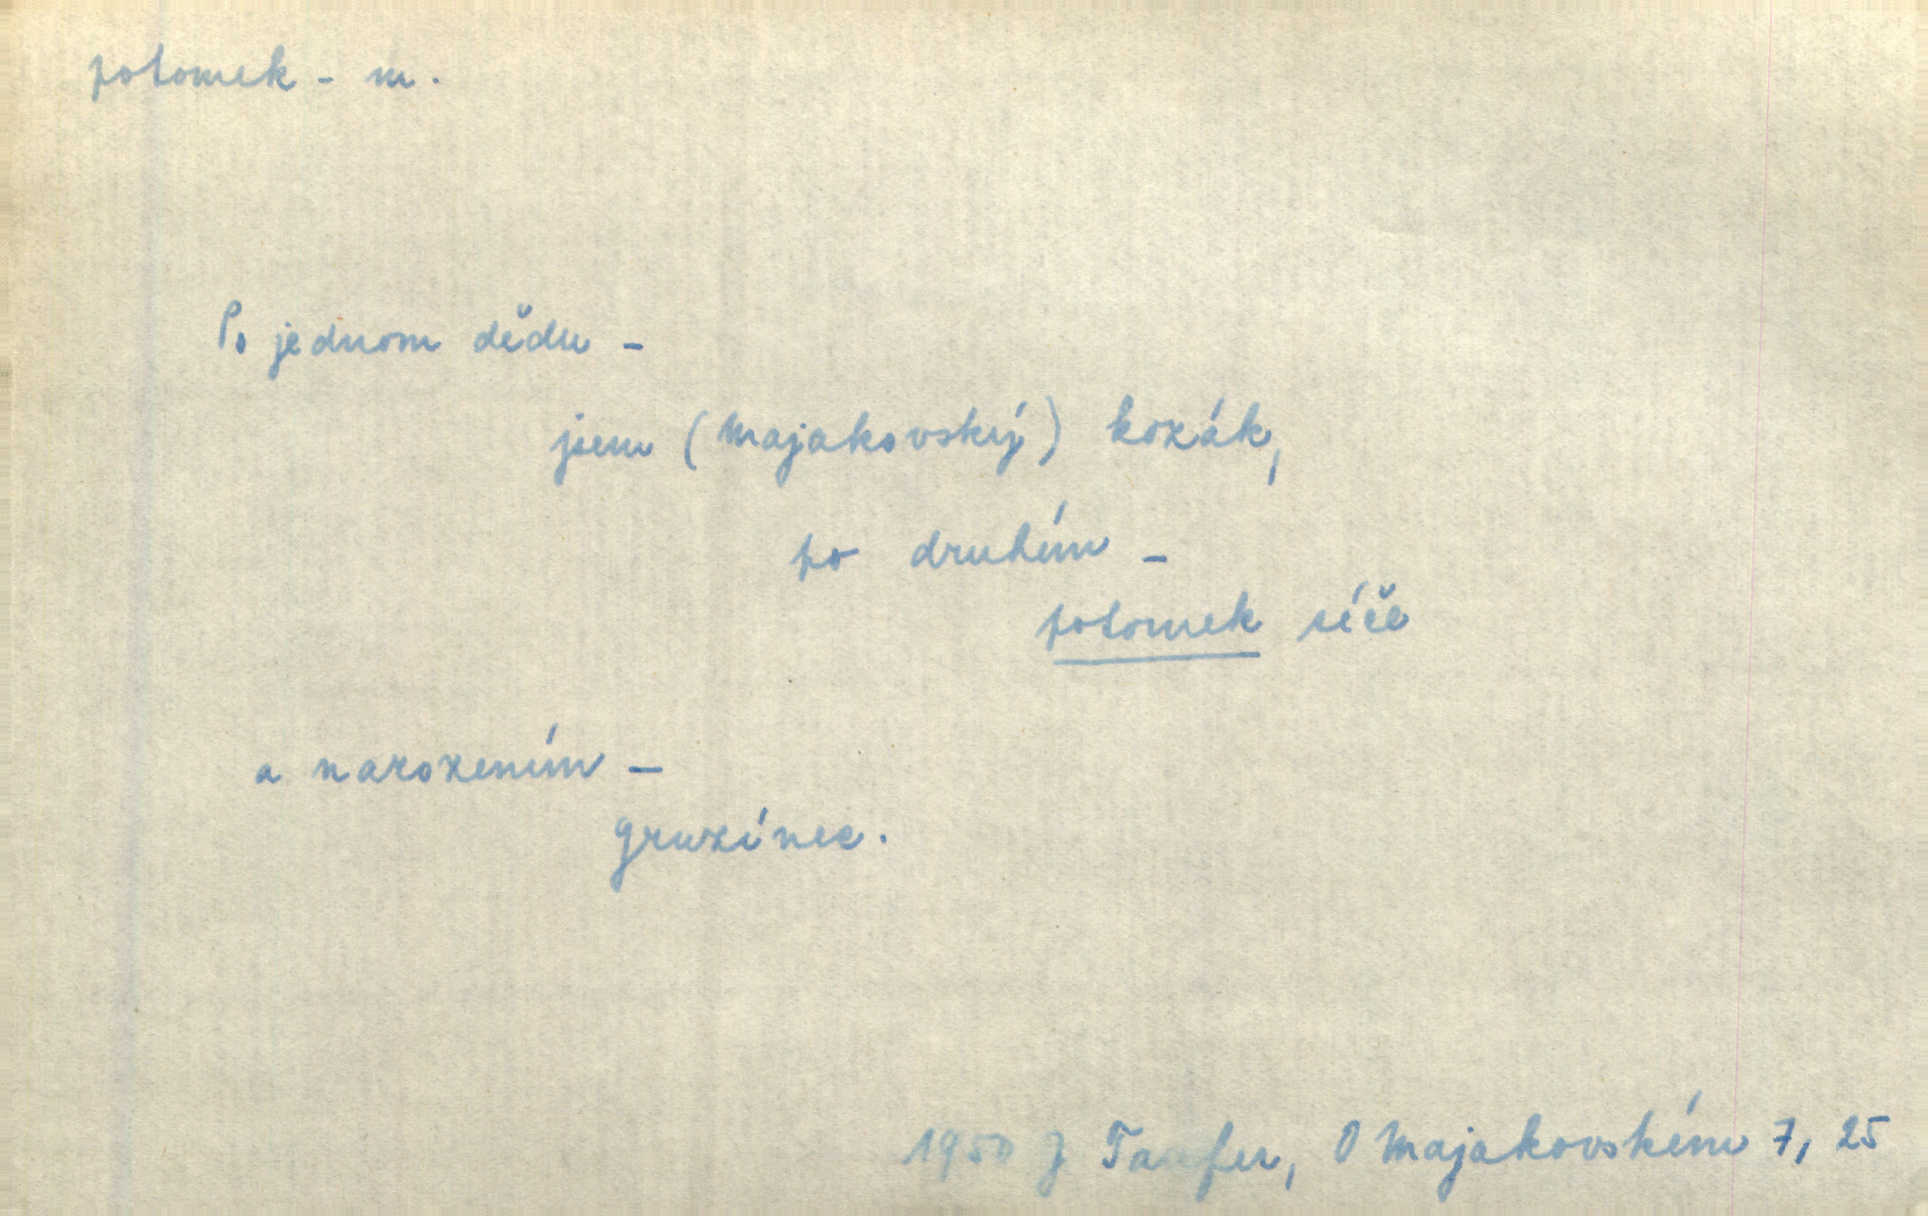 potomek - m.
Po jednom dědu -
jsem (Majakovský) kozák,
po druhém -
potomek síče
a narozením -
gruzínec.
1950 J Taufer, O Majakovském 7, 25